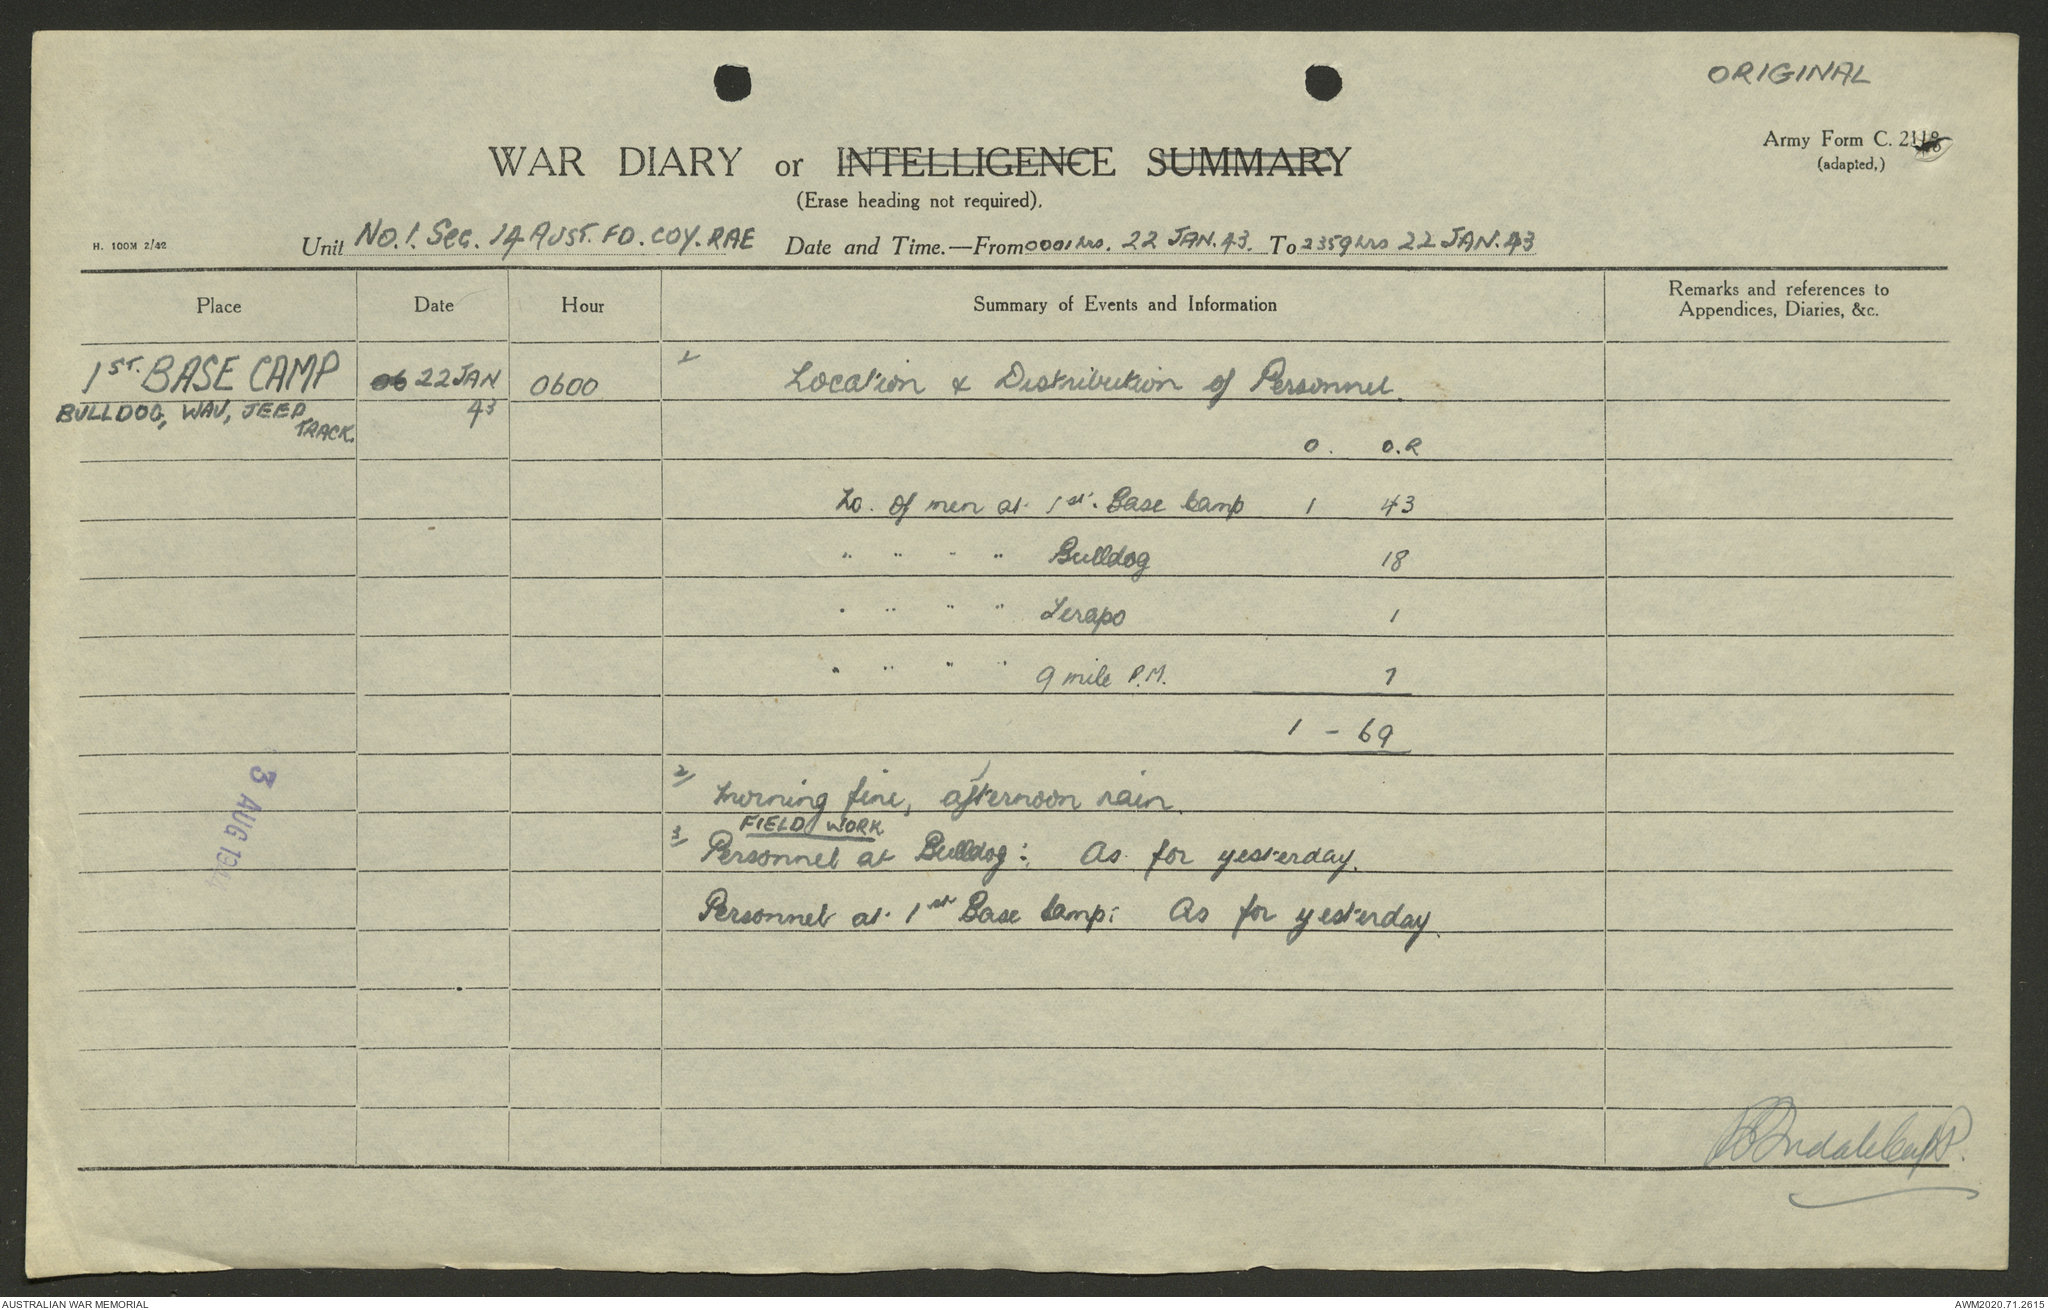 ORIGINAL
Army Form C. 2118
(adapted,)
WAR DIARY or INTELLIGENCE SUMMARY
(Erase heading not required).
H. 100M 2/42
Unit NO.1. Sec. 14 AUST. FD. COY. RAE Date and Time.—From 0001hrs. 22 JAN. 43. To 2359hrs 22 JAN. 43
Place Date Hour Summary of Events and Information Remarks and references to
Appendices, Diaries, &c.
1ST. BASE CAMP 22 JAN 0600 1/ Location & Distribution of Personnel.
BULLDOG, WAU, JEEP 43
TRACK.
O. O.R
No. of men at 1st. Base Camp 1 43
" " " " Bulldog 18
" " " " Terapo 1
" " " " 9 mile P.M. 7
1 - 69
2/ Morning fine, afternoon rain.
FIELD WORK
3/ Personnel at Bulldog: As for yesterday.
Personnel at 1st Base Camp: As for yesterday.
3 AUG 194
AUSTRALIAN WAR MEMORIAL
AWM2020.71.2615